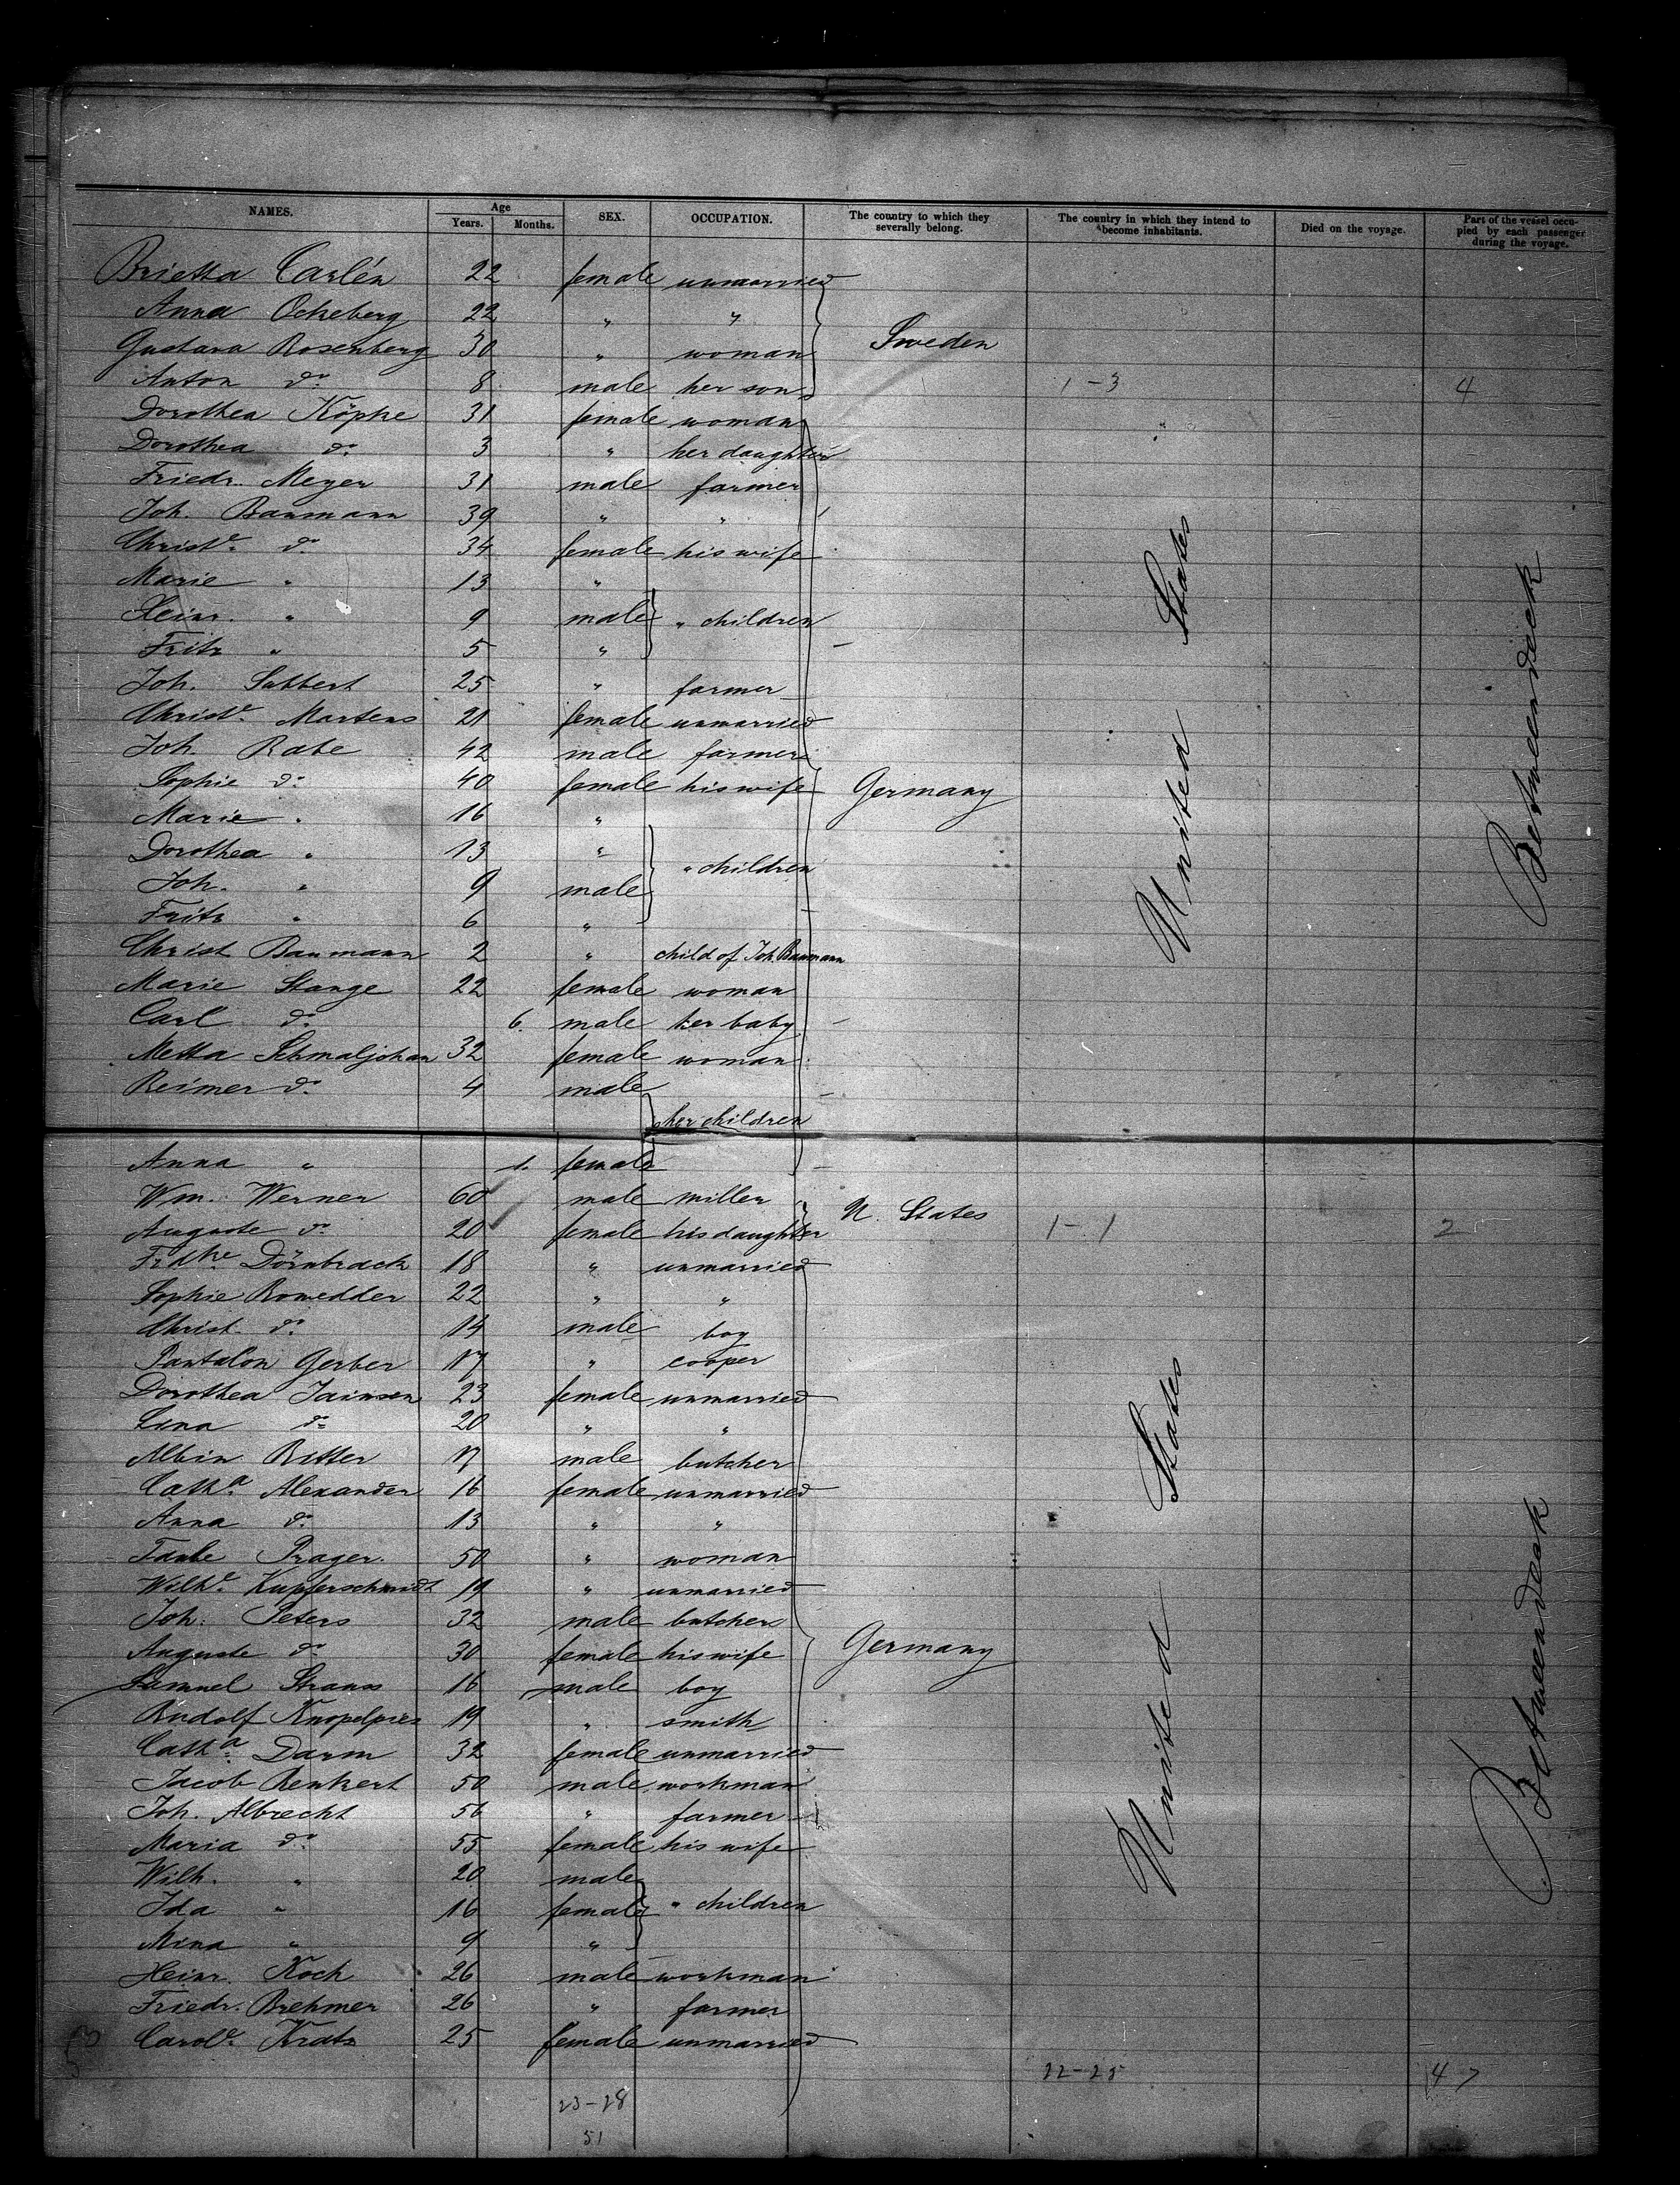 NAMES. Age Years. Months. SEX. OCCUPATION. The country to which they severally belong. The country in which they intend to become inhabitants. Died on the voyage. Part of the vessel occupied by each passenger during the voyage.
Brietta Carlén 22 female unmarried
Anna Ockeberg 22 " "
Gustava Rosenberg 30 " woman Sweden
Anton do. 8 male her son 1-3 4
Dorothea Köpke 31 female woman
Dorothea do. 3 " her daughter
Friedr. Meyer 31 male farmer
Joh. Baumann 39 " "
Christe. do. 34 female his wife
Marie " 13 "
Heinr. " 9 male " children
Fritz " 5 "
Joh. Sabbert 25 " farmer
Christe. Martens 21 female unmarried
Joh. Rabe 42 male farmer
Sophie do. 40 female his wife Germany United States Betweendeck
Marie " 16 "
Dorothea " 13 " " children
Joh. " 9 male
Fritz " 6 "
Christ Baumann 2 " child of Joh. Baumann
Marie Stange 22 female woman
Carl do. 6. male her baby
Metta Schmaljohan 32 female woman
Reimer do. 4 male
her children
Anna " 1. female
Wm. Werner 60 male miller U. States
Auguste do. 20 female his daughter 1-1 2
Frdke. Dörnbrack 18 " unmarried
Sophie Rowedder 22 " "
Christ. do. 14 male boy
Pantalon Gerber 17 " cooper
Dorothea Jainsen 23 female unmarried
Lina do. 20 " "
Albin Ritter 17 male butcher
Catha. Alexander 16 female unmarried
Anna do. 13 " "
Taube Prager. 50 " woman
Wilhe. Kupferschmidt 19 " unmarried
Joh. Peters 32 male butcher
Auguste do. 30 female his wife Germany United States Betweendeck
Samuel Strauss 16 male boy
Rudolf 19 " smith
Catha. Darm 32 female unmarried
Jacob Renkert 50 male workman
Joh. Albrecht 56 " farmer
Maria do. 55 female his wife
Wilh. " 20 male
Ida " 16 female " children
Mina " 9 "
Heinr. Koch 26 male workman
Friedr. Brehmer 26 " farmer
Carole. Kratz 25 female unmarried
22-25 47
23-28
51
53